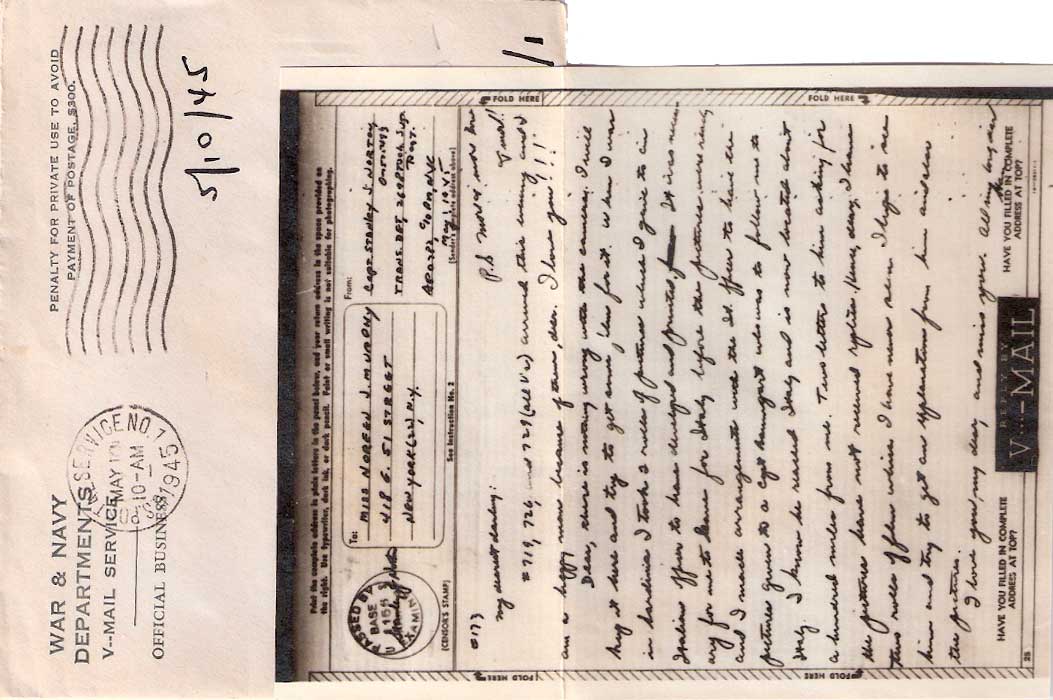 WAR & NAVY
DEPARTMENTS
V--MAIL SERVICE
OFFICIAL BUSINESS
SERVICE NO 1
MAY 10
10-AM
1945
PENALTY FOR PRIVATE USE TO AVOID
PAYMENT OF POSTAGE, $300.
5/10/45
Print the complete address in plain letters in the panel below, and your return address in the space provided on
the right. Use typewriter, dark ink, or dark pencil. Faint or small writing is not suitable for photographing.
PASSED BY
BASE
EXAMINER
(CENSOR'S STAMP)
To:
MISS NOREEN J. MURPHY
418 E. 51 STREET
NEW YORK (22), N.Y.
See Instruction No. 2
From:
CAPT. STANLEY J. NORTON
TRANS. DPT,
c/o PM, NYC
May 1, 1945
(Sender's complete address above)
FOLD HERE
FOLD HERE
#173
P.S movies now
my dearest darling:
#719, 726, and 729 (all V's) arrived this evening and I
am a happy man because of them, dear. I love you!!!
Dear, there is nothing wrong with the camera. I will
buy it here and try to get some film for it. When I was
in Sardinia I took 2 rolls of pictures which I gave to an
Italian officer to have developed and printed
for me to leave for Italy before the pictures were ready
and I made arrangements with the It. officer to have the
pictures given to a Capt who was to follow me to
Italy. I know he reached Italy and is now located about
a hundred miles from me. Two letters to him asking for
the pictures have not received replies. Hence, dear, I have
two rolls of film which I have never seen. I hope to see
him and try to get an explanation from him and also
the pictures.
I love you, my dear, and miss you. All my love dear
HAVE YOU FILLED IN COMPLETE
ADDRESS AT TOP?
REPLY BY
V···MAIL
HAVE YOU FILLED IN COMPLETE
ADDRESS AT TOP?
25
FOLD HERE
FOLD HERE